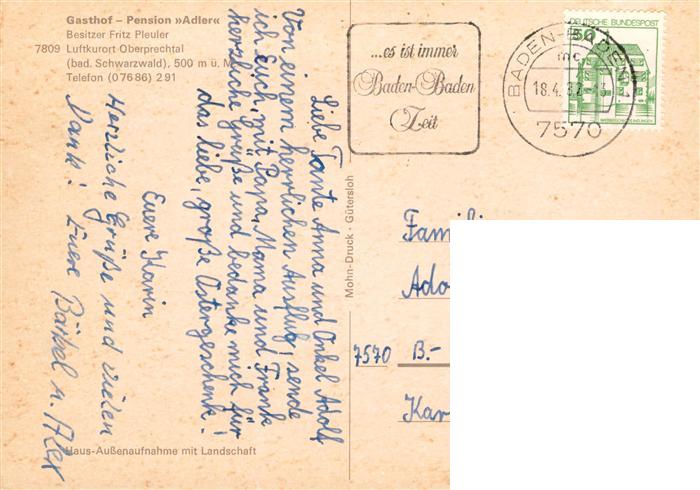 Gasthof – Pension »Adler«
Besitzer Fritz Pleuler
7809 Luftkurort Oberprechtal
(bad. Schwarzwald), 500 m ü. M
Telefon (07686) 291
Liebe Tante Anna und Onkel Adolf
Von einem herrlichen Ausflug, sende
ich Euch, mit Papa, Mama und Frank
herzliche Grüße und bedanke mich für
das liebe, große Ostergeschenk!
Eure Karin
Herzliche Grüße und vielen
Dank! Eure Bärbel u. Alex
Haus-Außenaufnahme mit Landschaft
Mohn-Druck · Gütersloh
...es ist immer
Baden-Baden
Zeit
BADEN-BADEN
mc
18.4.
7570
DEUTSCHE BUNDESPOST
50
Fami
Ado
7570 B.-
Kar